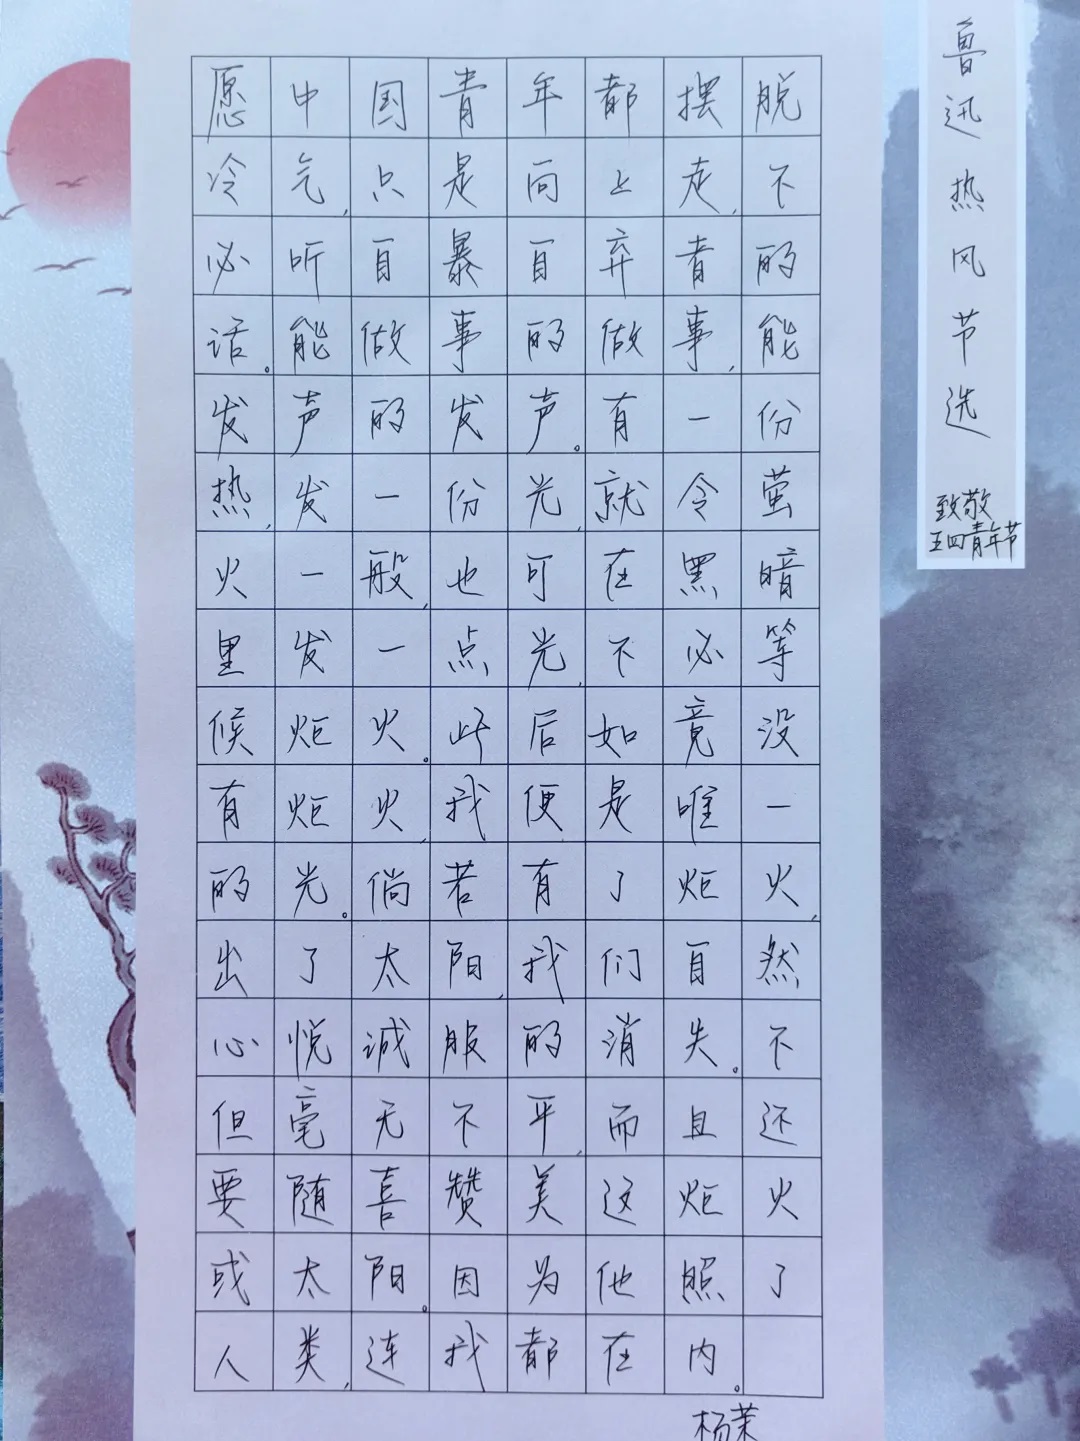 愿中国青年都摆脱
冷气,只是向上走,不
必听自暴自弃者的
话。能做事的做事,能
发声的发声。有一份
热,发一份光,就令萤
火一般,也可在黑暗
里发一点光,不必等
候炬火。此后如竟没
有炬火,我便是唯一
的光。倘若有了炬火,
出了太阳,我们自然
心悦诚服的消失。不
但毫无不平,而且还
要随喜赞美这炬火
或太阳。因为他照了
人类,连我都在内。
杨茉
鲁迅热风节选
致敬
五四青年节